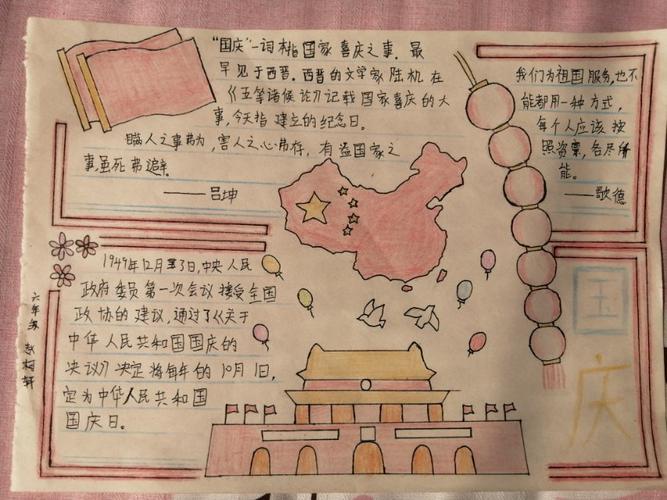 “国庆”一词本指国家喜庆之事．最
早见于西晋．西晋的文学家陆机在
《五等诸侯论》记载国家喜庆的大
事，今天指建立的纪念日。
瞒人之事弗为，害人之心弗存，有益国家之
事虽死弗避．
——吕坤
1949年12月3日，中央人民
政府委员第一次会议接受全国
政协的建议，通过了《关于
中华人民共和国国庆的
决议》决定将每年的10月1日，
定为中华人民共和国
国庆日。
我们为祖国服务，也不
能都用一种方式，
每个人应该按
照资禀，各尽所
能。
——歌德
国
庆
六年级